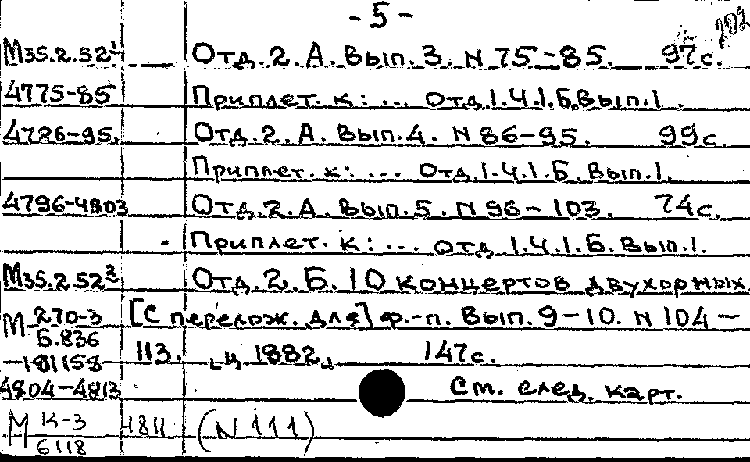 - 5 -
М35.2.52¹ Отд.2.А.Вып.3. N 75-85. 97с.
4775-85 Приплет. к: ... Отд.1.Ч.1.Б.Вып.1.
4786-95. Отд.2.А.Вып.4. N 86-95. 99с.
Приплет. к: ... Отд.1.Ч.1.Б.Вып.1.
4796-4803 Отд.2.А.Вып.5. N 96-103. 74с.
Приплет. к: ... отд.1.Ч.1.Б.Вып.1.
М35.2.52³ Отд.2.Б. 10 концертов двухорных.
М 270-3 [С перелож. для] ф.-п. Вып. 9-10. N 104-
Б.836
-181158 113. „Ц. 1882„ 147с.
4804-4813 См. след. карт.
М К-3 4811 (N 111)
6118